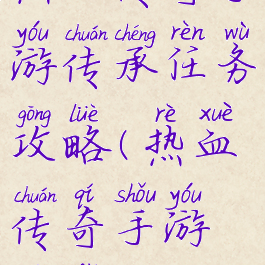 yóu chuán chéng rèn wù
游传承任务
gōng lüè rè xuè
攻略(热血
chuán qí shǒu yóu
传奇手游